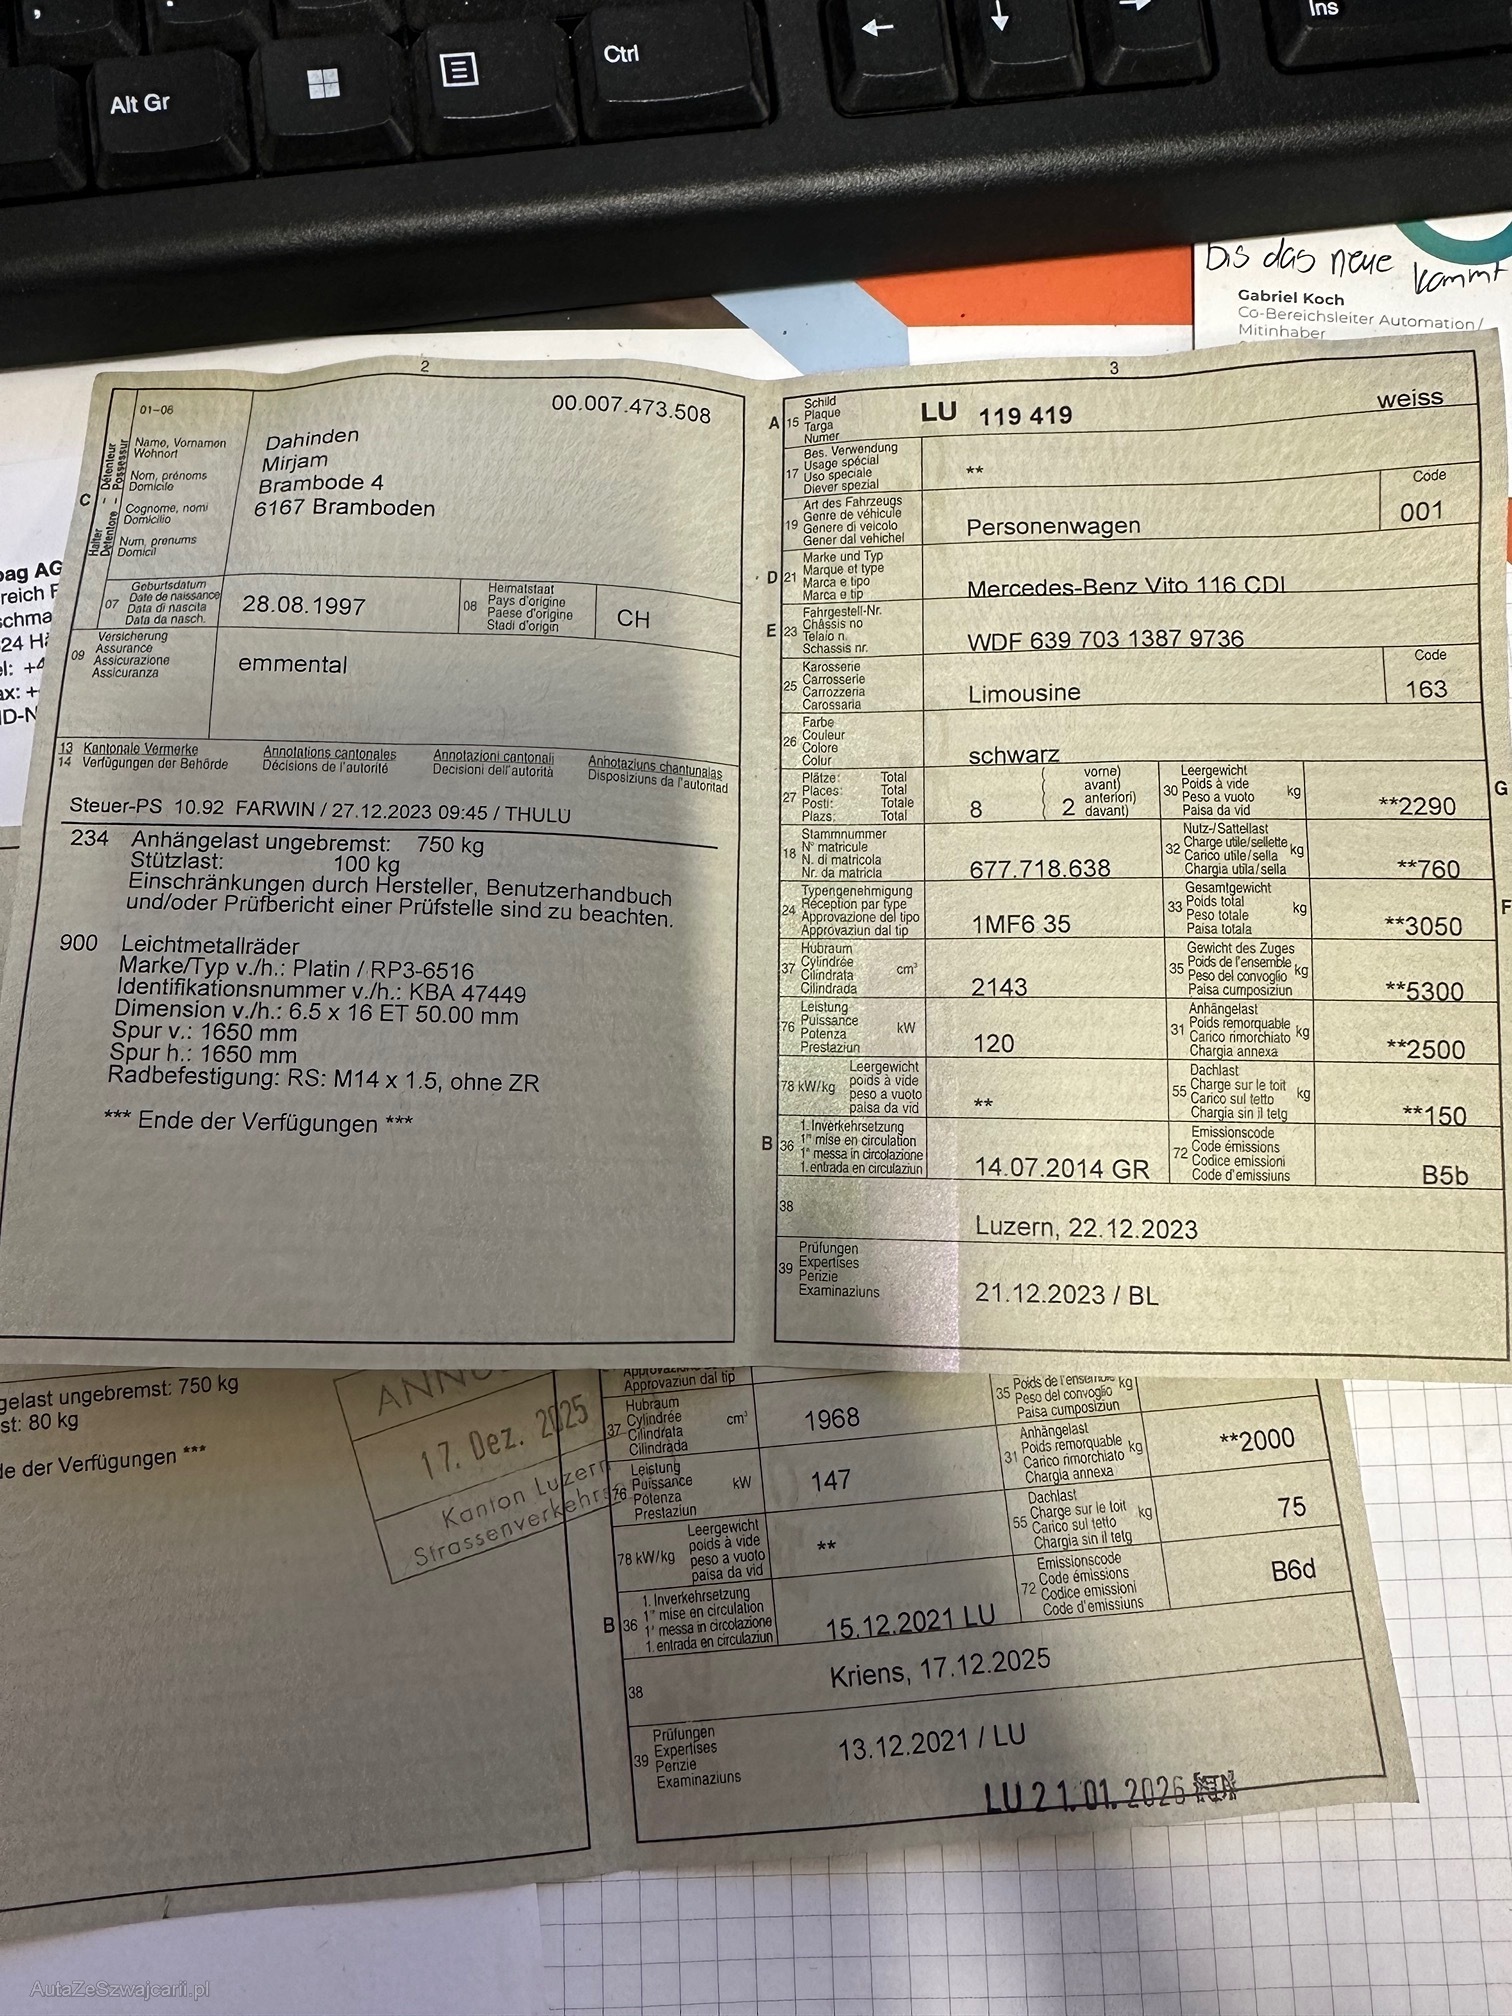 Alt Gr
Ctrl
←
↓
→
Ins
bis das neue kommt
Gabriel Koch
Co-Bereichsleiter Automation/
Mitinhaber
2
01-06
00.007.473.508
C
Halter Détenteur
Detentore Possessur
Name, Vornamen
Wohnort
Nom, prénoms
Domicile
Cognome, nomi
Domicilio
Num, prenums
Domicil
Dahinden
Mirjam
Brambode 4
6167 Bramboden
07
Geburtsdatum
Date de naissance
Data di nascita
Data da nasch.
28.08.1997
08
Heimatstaat
Pays d'origine
Paese d'origine
Stadi d'origin
CH
09
Versicherung
Assurance
Assicurazione
Assicuranza
emmental
13 Kantonale Vermerke
14 Verfügungen der Behörde
Annotations cantonales
Décisions de l'autorité
Annotazioni cantonali
Decisioni dell'autorità
Annotaziuns chantunalas
Disposiziuns da l'autoritad
Steuer-PS 10.92 FARWIN / 27.12.2023 09:45 / THULU
234 Anhängelast ungebremst: 750 kg
Stützlast: 100 kg
Einschränkungen durch Hersteller, Benutzerhandbuch
und/oder Prüfbericht einer Prüfstelle sind zu beachten.
900 Leichtmetallräder
Marke/Typ v./h.: Platin / RP3-6516
Identifikationsnummer v./h.: KBA 47449
Dimension v./h.: 6.5 x 16 ET 50.00 mm
Spur v.: 1650 mm
Spur h.: 1650 mm
Radbefestigung: RS: M14 x 1.5, ohne ZR
*** Ende der Verfügungen ***
3
A 15
Schild
Plaque
Targa
Numer
LU 119 419
weiss
17
Bes. Verwendung
Usage spécial
Uso speciale
Diever spezial
**
19
Art des Fahrzeugs
Genre de véhicule
Genere di veicolo
Gener dal vehichel
Personenwagen
Code
001
D 21
Marke und Typ
Marque et type
Marca e tipo
Marca e tip
Mercedes-Benz Vito 116 CDI
E 23
Fahrgestell-Nr.
Châssis no
Telaio n.
Schassis nr.
WDF 639 703 1387 9736
25
Karosserie
Carrosserie
Carrozzeria
Carossaria
Limousine
Code
163
26
Farbe
Couleur
Colore
Colur
schwarz
27
Plätze: Total
Places: Total
Posti: Totale
Plazs: Total
8
2
vorne)
avant)
anteriori)
davant)
30
Leergewicht
Poids à vide
Peso a vuoto
Paisa da vid
kg
**2290
G
18
Stammnummer
N° matricule
N. di matricola
Nr. da matricla
677.718.638
32
Nutz-/Sattellast
Charge utile/sellette
Carico utile/sella
Chargia utila/sella
kg
**760
24
Typengenehmigung
Réception par type
Approvazione del tipo
Approvaziun dal tip
1MF6 35
33
Gesamtgewicht
Poids total
Peso totale
Paisa totala
kg
**3050
F
37
Hubraum
Cylindrée
Cilindrata
Cilindrada
cm³
2143
35
Gewicht des Zuges
Poids de l'ensemble
Peso del convoglio
Paisa cumposiziun
kg
**5300
76
Leistung
Puissance
Potenza
Prestaziun
kW
120
31
Anhängelast
Poids remorquable
Carico rimorchiato
Chargia annexa
kg
**2500
78 kW/kg
Leergewicht
poids à vide
peso a vuoto
paisa da vid
**
55
Dachlast
Charge sur le toit
Carico sul tetto
Chargia sin il tetg
kg
**150
B 36
1. Inverkehrsetzung
1re mise en circulation
1a messa in circolazione
1. entrada en circulaziun
14.07.2014 GR
72
Emissionscode
Code émissions
Codice emissioni
Code d'emissiuns
B5b
38
Luzern, 22.12.2023
39
Prüfungen
Expertises
Perizie
Examinaziuns
21.12.2023 / BL
gelast ungebremst: 750 kg
st: 80 kg
de der Verfügungen ***
17. Dez. 2025
Kanton Luzern
Approvaziun dal tip
37
Hubraum
Cylindrée
Cilindrata
Cilindrada
cm³
1968
35
Poids de l'ensemble
Peso del convoglio
Paisa cumposiziun
kg
76
Leistung
Puissance
Potenza
Prestaziun
kW
147
31
Anhängelast
Poids remorquable
Carico rimorchiato
Chargia annexa
kg
**2000
78 kW/kg
Leergewicht
poids à vide
peso a vuoto
paisa da vid
**
55
Dachlast
Charge sur le toit
Carico sul tetto
Chargia sin il tetg
kg
75
B 36
1. Inverkehrsetzung
1re mise en circulation
1a messa in circolazione
1. entrada en circulaziun
15.12.2021 LU
72
Emissionscode
Code émissions
Codice emissioni
Code d'emissiuns
B6d
38
Kriens, 17.12.2025
39
Prüfungen
Expertises
Perizie
Examinaziuns
13.12.2021 / LU
LU 21.01.2026
AutaZeSzwajcarii.pl